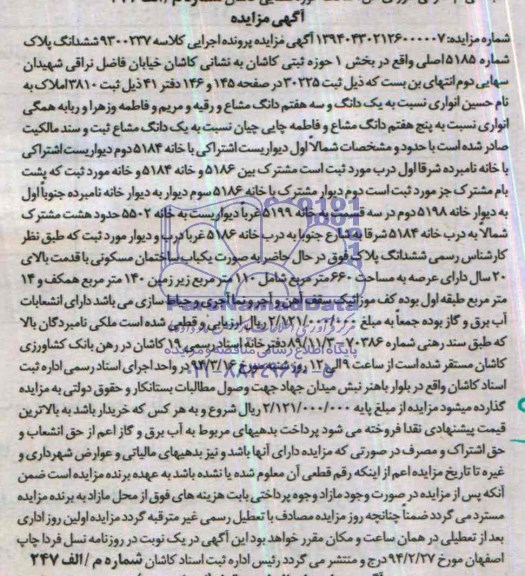 آگهی مزایده
شماره مزایده: ۱۳۹۴۰۴۳۰۲۱۲۶۰۰۰۰۰۷ آگهی مزایده پرونده اجرایی کلاسه ۹۳۰۰۲۳۷ ششدانگ پلاک
شماره ۵۱۸۵ اصلی واقع در بخش ۱ حوزه ثبتی کاشان به نشانی کاشان خیابان فاضل نراقی شهیدان
سهایی دوم انتهای بن بست که ذیل ثبت ۳۰۲۲۵ در صفحه ۱۴۵ و ۱۴۶ دفتر ۴۱ ذیل ثبت ۳۸۱۰ املاک به
نام حسین انواری نسبت به یک دانگ و سه هفتم دانگ مشاع و رقیه و مریم و فاطمه وزهرا و ربابه همگی
انواری نسبت به پنج هفتم دانگ مشاع و فاطمه چایی چیان نسبت به یک دانگ مشاع ثبت و سند مالکیت
صادر شده است با حدود و مشخصات شمالاً اول دیواریست اشتراکی با خانه ۵۱۸۴ دوم دیواریست اشتراکی
با خانه نامبرده شرقا اول درب مورد ثبت است مشترک بین ۵۱۸۶ و خانه ۵۱۸۴ و خانه مورد ثبت که پشت
بام مشترک جز مورد ثبت است دوم دیوار مشترک با خانه ۵۱۸۶ سوم دیوار به دیوار خانه نامبرده جنوباً اول
به دیوار خانه ۵۱۹۸ دوم در سه قسمت به خانه ۵۱۹۹ غرباً دیواریست به خانه ۵۵۰۲ حدود هشت مشترک
شمالا به درب خانه ۵۱۸۴ شرقا به شارع جنوبا به درب خانه ۵۱۸۶ غربا درب و دیوار مورد ثبت که طبق نظر
کارشناس رسمی ششدانگ پلاک فوق در حال حاضر به صورت یکباب ساختمان مسکونی با قدمت بالای
۲۰ سال دارای عرصه به مساحت ۶۶۰ متر مربع شامل ۱۱۰ متر مربع زیر زمین ۱۴۰ متر مربع همکف و ۱۴
متر مربع طبقه اول بوده کف موزائیک سقف آهن و آجر و نما آجری و حیاط سازی می باشد دارای انشعابات
آب برق و گاز بوده جمعاً به مبلغ ۲/۱۲۱/۰۰۰/۰۰۰ ریال ارزیابی و قطعی شده است ملکی نامبردگان بالا
که طبق سند رهنی شماره ۷۰۳۸۶-۸۹/۱۱/۳ دفتر خانه اسناد رسمی ۱۹ کاشان در رهن بانک کشاورزی
کاشان مستقر شده است از ساعت ۹ الی ۱۲ روز شنبه مورخ ۹۴/۳/۱۶ در واحد اجرای اسناد رسمی اداره ثبت
اسناد کاشان واقع در بلوار باهنر نبش میدان جهاد جهت وصول مطالبات بستانکار و حقوق دولتی به مزایده
گذارده میشود مزایده از مبلغ پایه ۲/۱۲۱/۰۰۰/۰۰۰ ریال شروع و به هر کس که خریدار باشد به بالاترین
قیمت پیشنهادی نقدا فروخته می شود پرداخت بدهیهای مربوط به آب برق و گاز اعم از حق انشعاب و
حق اشتراک و مصرف در صورتی که مزایده دارای آنها باشد و نیز بدهیهای مالیاتی و عوارض شهرداری و
غیره تا تاریخ مزایده اعم از اینکه رقم قطعی آن معلوم شده یا نشده باشد به عهده برنده مزایده است ضمن
آنکه پس از مزایده در صورت وجود مازاد وجوه پرداختی بابت هزینه های فوق از محل مازاد به برنده مزایده
مسترد می گردد ضمناً چنانچه روز مزایده مصادف با تعطیل رسمی غیر مترقبه گردد مزایده اولین روز اداری
بعد از تعطیلی در همان ساعت و مکان مقرر خواهد بود این آگهی در یک نوبت در روزنامه نسل فردا چاپ
اصفهان مورخ ۹۴/۲/۲۷ درج و منتشر می گردد رئیس اداره ثبت اسناد کاشان شماره م/الف ۲۴۷